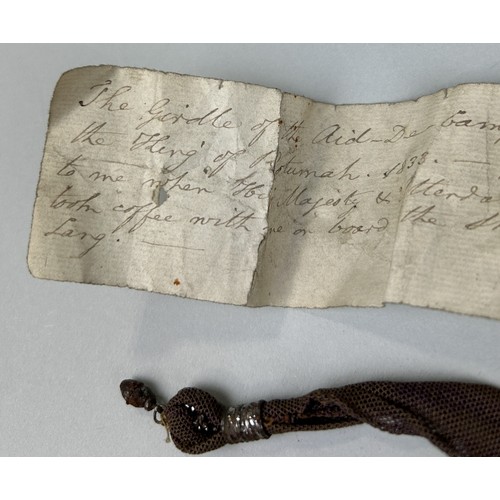 The Girdle of the Aid-De Cam
the King of Rotumah. 1833. —
to me when His Majesty & Attenda
took coffee with me on board the S
Lang. —